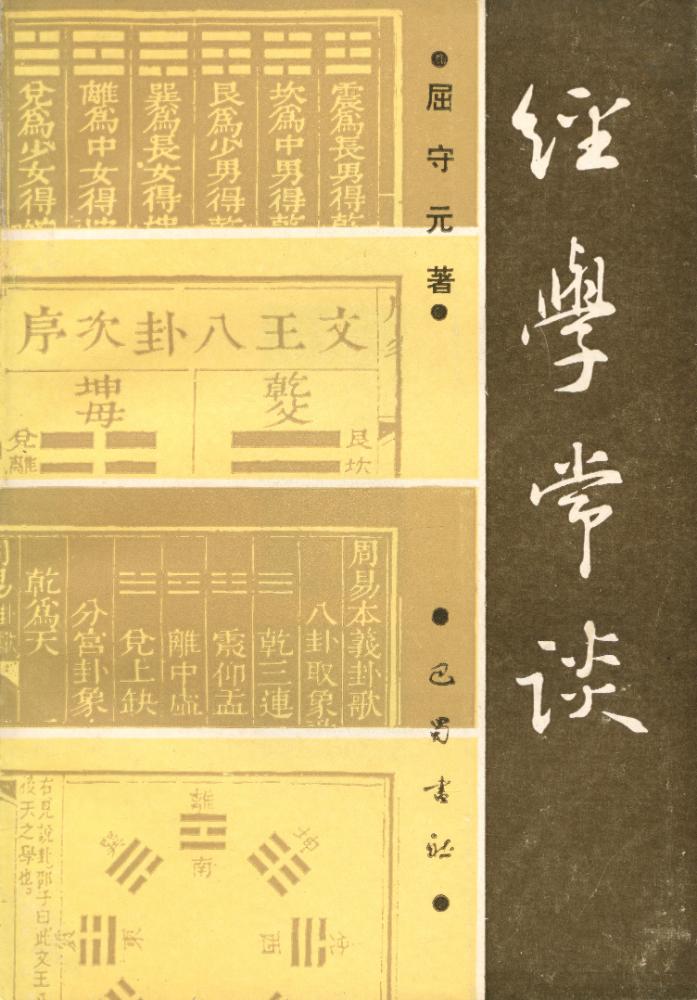 經學常談
屈守元著
巴蜀書社
震爲長男得乾
坎爲中男得乾
艮爲少男得乾
巽爲長女得坤
離爲中女得
兌爲少女得
文王八卦次序
乾父
坤母
艮坎
兌離
周易本義卦歌
八卦取象
乾三連
震仰盂
離中虛
兌上缺
分宮卦象
乾爲天
周易卦歌
離
南
坤
巽
東
西
兌
震
右見說卦邵子曰此文王
後天之學也。